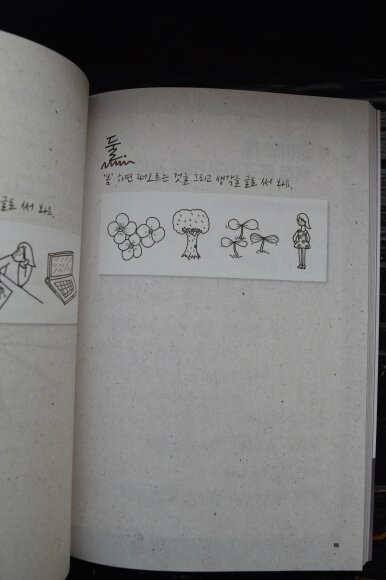 글로 써 봐요.
둘
'봄' 하면 떠오르는 것을 그리고 생각을 글로 써 봐요.